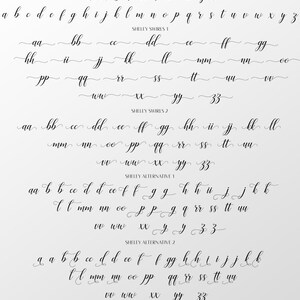 a b c d e f g h i j k l m n o p q r s t u v w x y z
SHELLEY SWORES 1
aa bb cc dd ee ff gg
hh ii jj kk ll mm nn oo
pp qq rr ss tt uu vv
ww xx yy zz
SHELLEY SWORES 2
aa bb cc dd ee ff gg hh ii jj kk ll
mm nn oo pp qq rr ss tt uu
vv ww xx yy zz
SHELLEY ALTERNATIVE 1
aa b b c c d d e e f f g g h h i i j j k k
l l mm nn oo p p g q rr ss tt uu
vv ww xx y y z z
SHELLEY ALTERNATIVE 2
a a b b c c d d e e f f g g h h i i j j k k
l l mm nn oo pp qq rr ss tt uu
vv ww xx y y zz